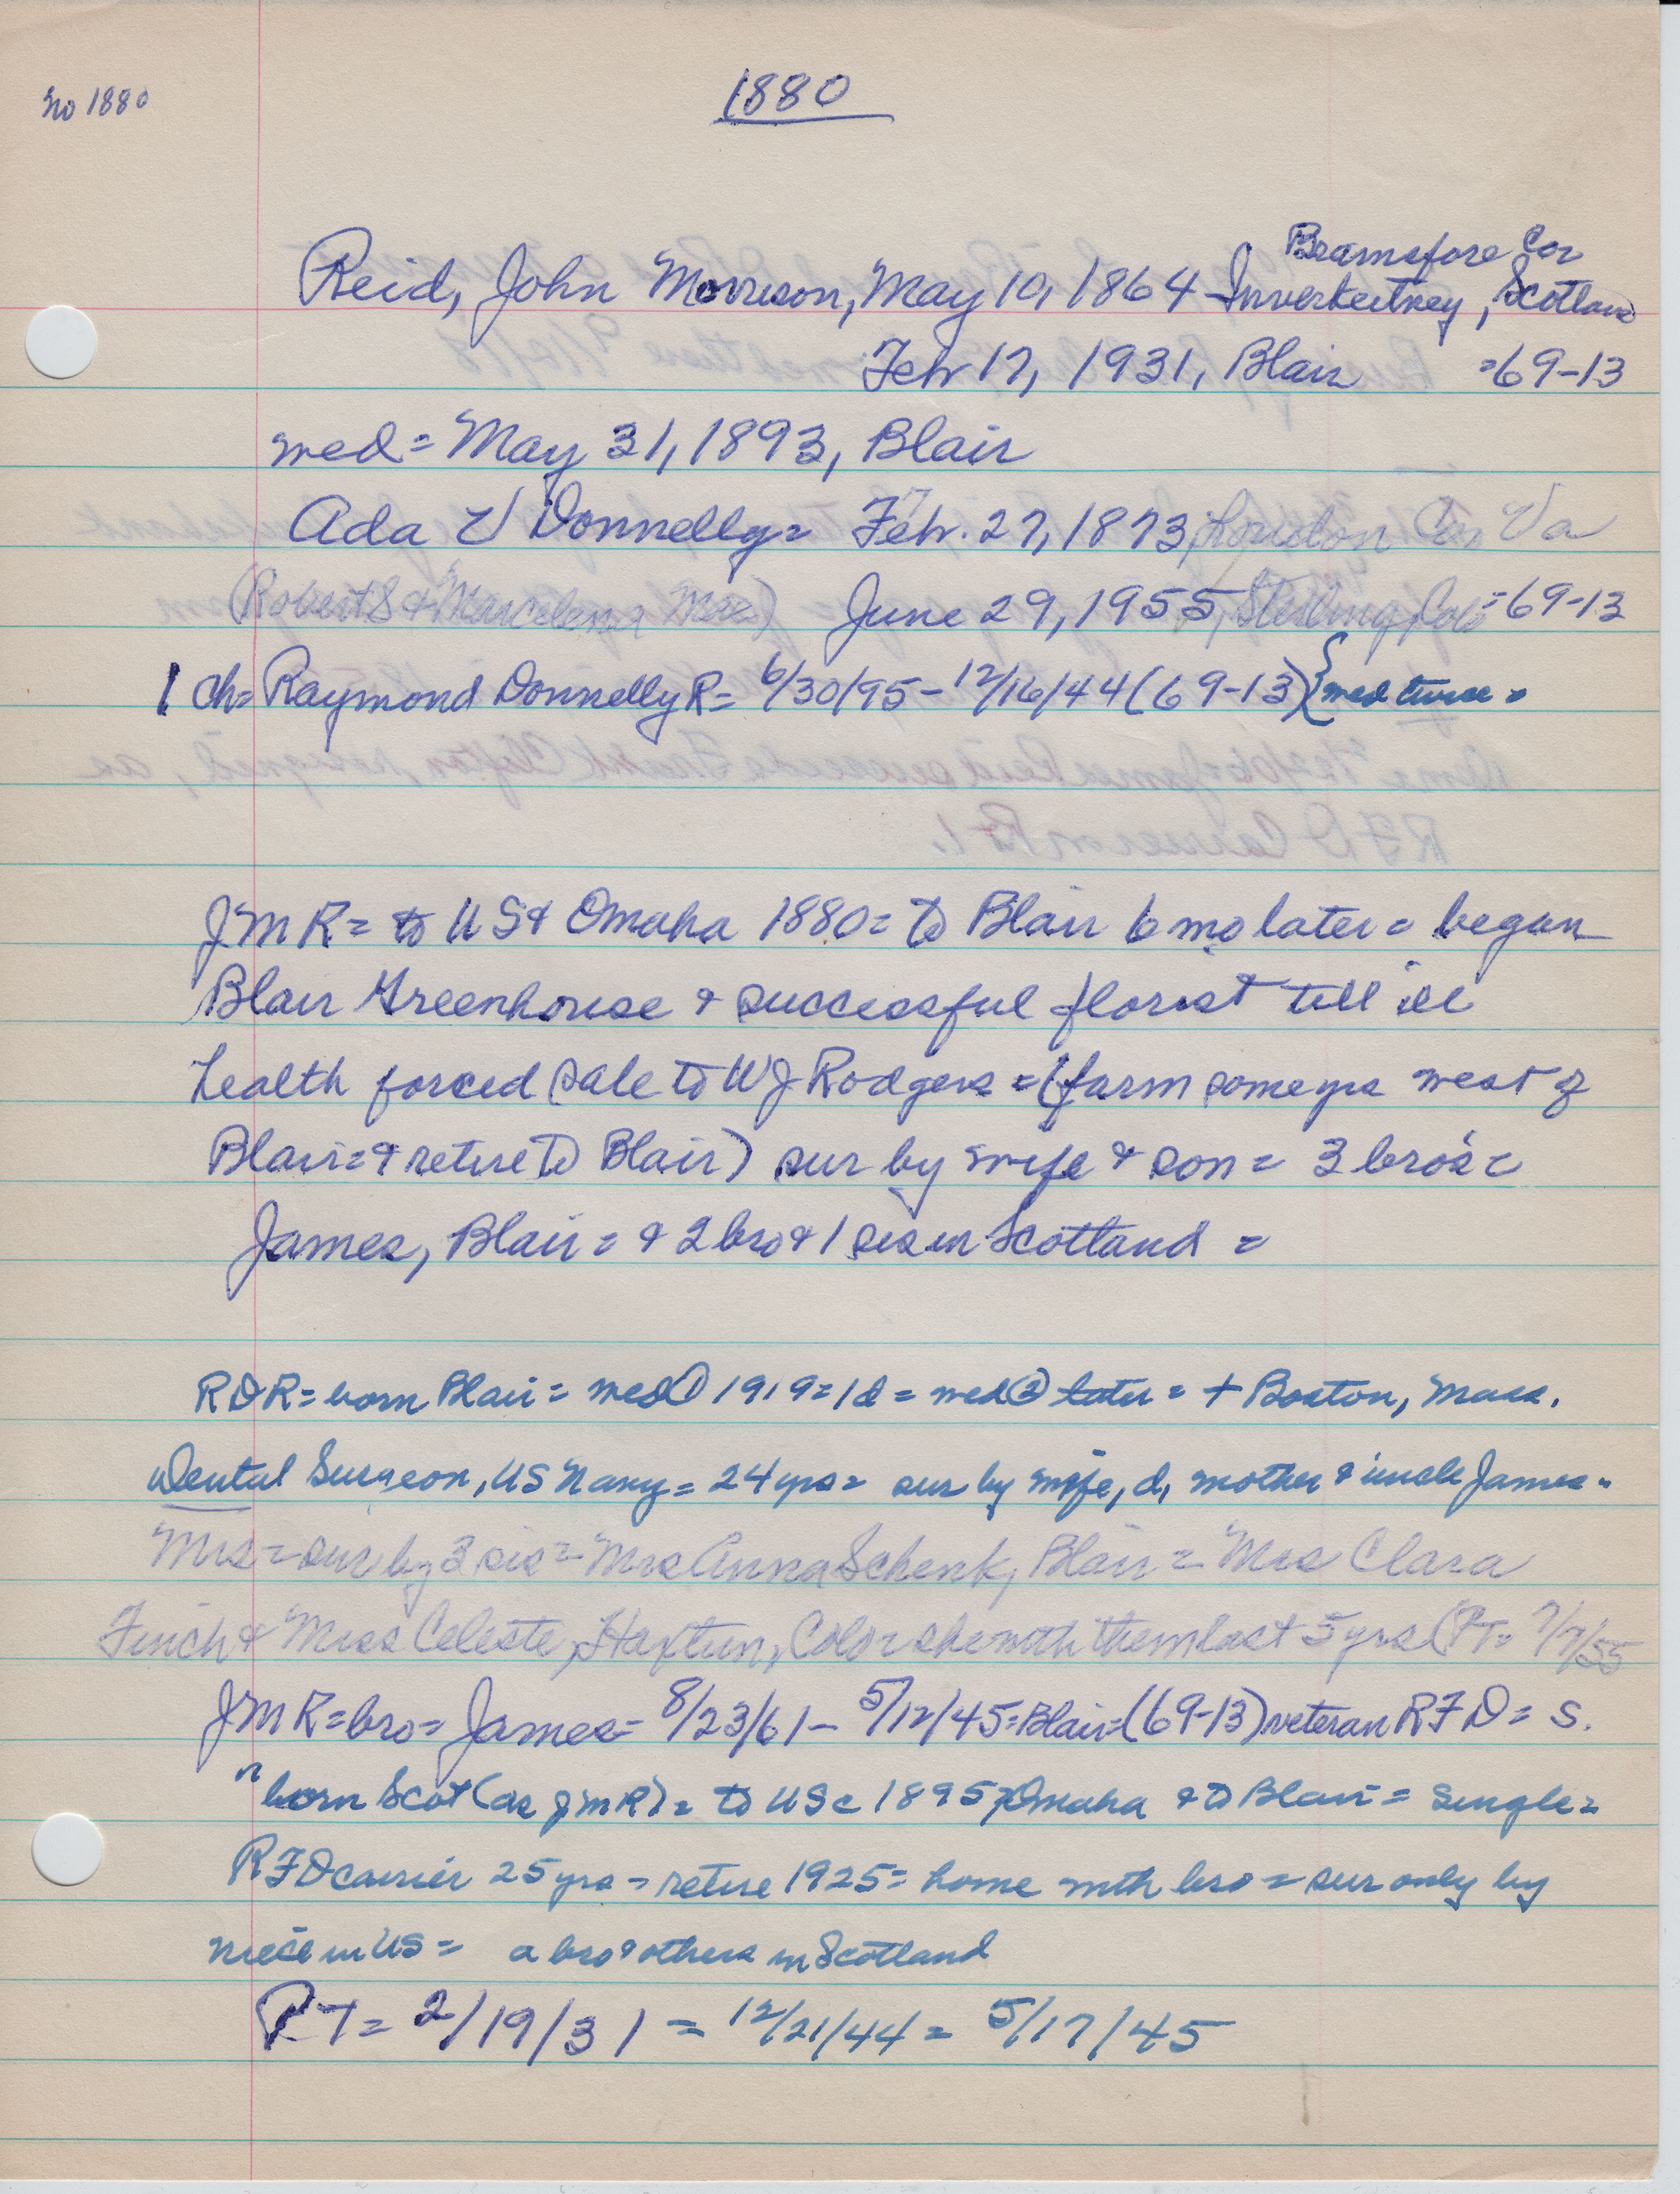 no 1880
1880
Bramsfore Co or
Reid, John Morrison, May 10, 1864 - Inverkeitney, Scotland
Febr 17, 1931, Blair = 69-13
med = May 31, 1893, Blair
Ada V Donnelly = Febr. 27, 1873, Loudon Co, Va
(Robert S & Marcelena Mae) June 29, 1955, Sterling, Colo = 69-13
1 ch = Raymond Donnelly R = 6/30/95 - 12/16/44 (69-13) { med twice =
JMR = to US & Omaha 1880 = to Blair 6 mo later = began
Blair Greenhouse & successful florist till ill
health forced sale to WJ Rodgers = (farm some yrs west of
Blair = & retire to Blair) sur by wife & son = 3 bros =
James, Blair = & 2 bro & 1 sis in Scotland =
RDR = born Blair = med ① 1919 = 1 d = med ② later = + Boston, Mass.
Dental Surgeon, US Navy = 24 yrs = sur by wife, d, mother & uncle James =
Mrs = sur by 3 sis = Mrs Anna Schenk, Blair = Mrs Clara
Finch & Miss Celeste, Haxtun, Colo = she with them last 5 yrs (PT = 7/7/55
JMR = bro = James = 8/23/61 - 5/12/45 = Blair = (69-13) veteran RFD = S.
" born Scot (as JMR) = to US c 1895 = Omaha & to Blair = single =
RFD carrier 25 yrs = retire 1925 = home with bro = sur only by
niece in US = a bro & others in Scotland
PT = 2/19/31 = 12/21/44 = 5/17/45